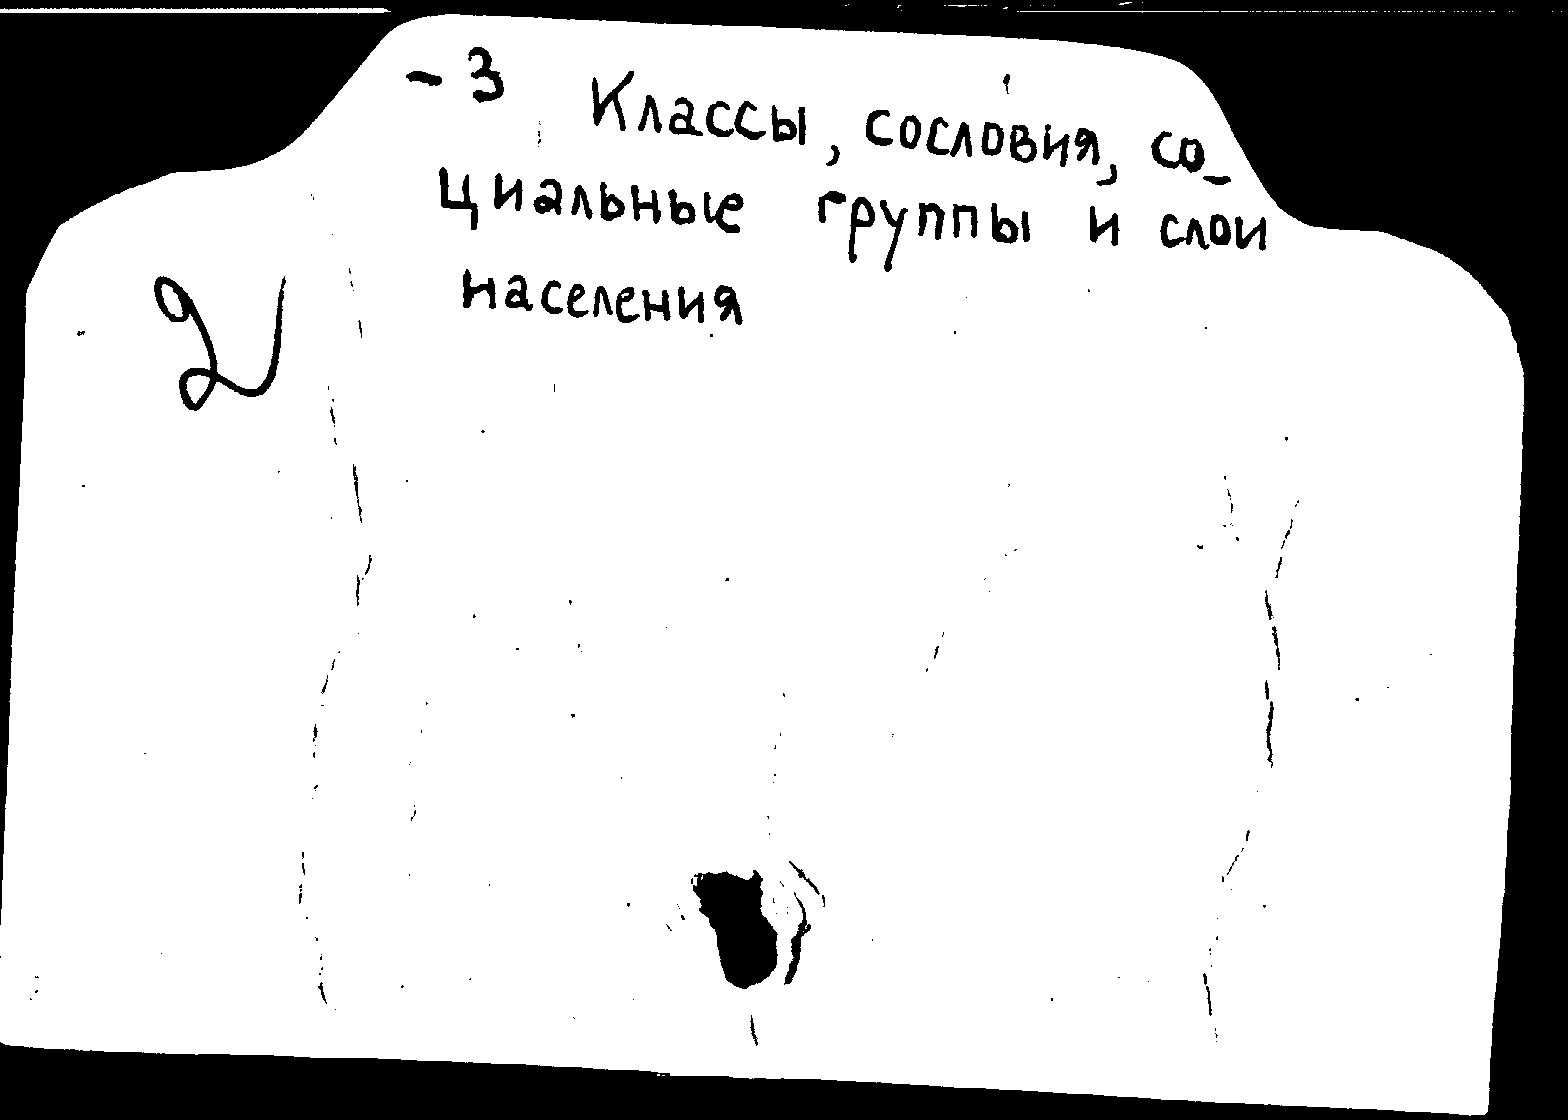 - 3 Классы, сословия, со-
циальные группы и слои
населения
2